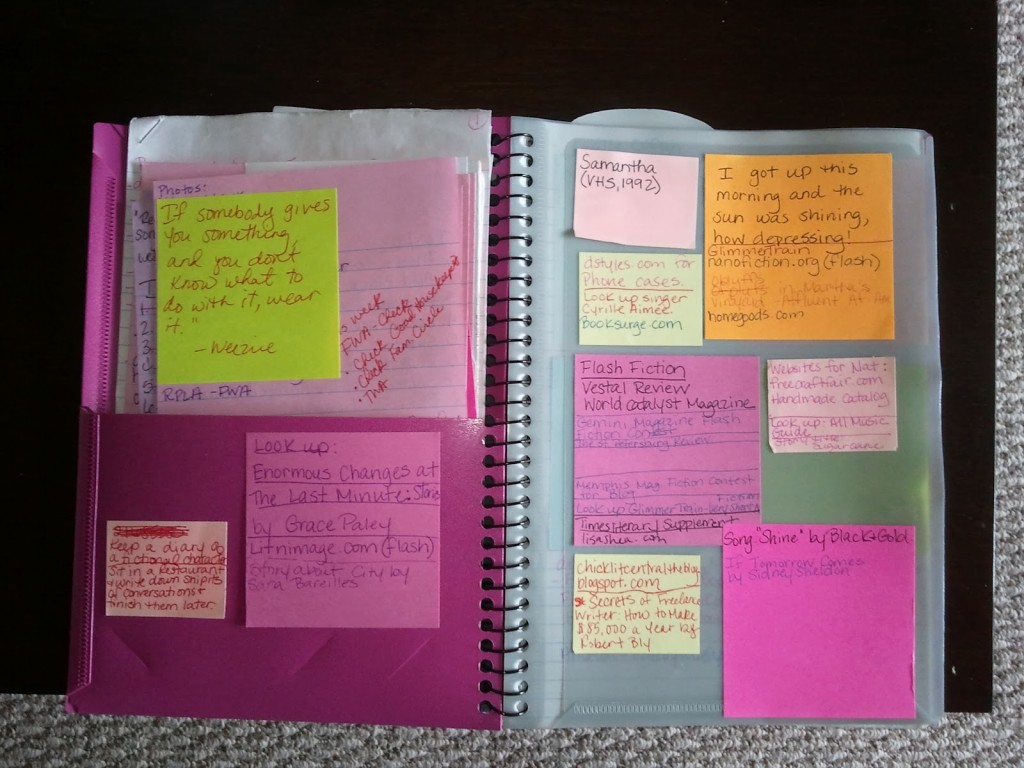 Photos:
If somebody gives
you something,
and you don't
know what to
do with it, wear
it."
-Weezie
week
FWA-Check
Check Good Housekeeping
Check Fam. Circle
RPLA -FWA
Look up:
Enormous Changes at
The Last Minute: Stories
by Grace Paley
Litnimage.com (flash)
Story about City by
Sara Bareilles
Keep a diary of
a fictional character
Sit in a restaurant
& write down snipits
of conversations &
finish them later.
Samantha
(VHS, 1992)
I got up this
morning and the
sun was shining,
how depressing!
Glimmertrain
nanofiction.org (flash)
in Martha's
homegoods.com
dstyles.com for
Phone cases.
Look up singer
Cyrille Aimee.
Booksurge.com
Flash Fiction
Vestal Review
World Catalyst Magazine
Gemini Magazine Flash
Fiction Contest
Memphis Mag. Fiction Contest
Fiction
Look up Glimmer Train-Very Short
Times literary Supplement
lisashea.com
Websites for Nat:
freecraftfair.com
Handmade Catalog
Look up: All Music
Guide
Sugarcane
chicklitcentraltheblog.
blogspot.com
Secrets of Freelance
Writer: How to Make
$85,000 a Year by
Robert Bly
Song "Shine" by Black & Gold.
If Tomorrow Comes
by Sidney Sheldon